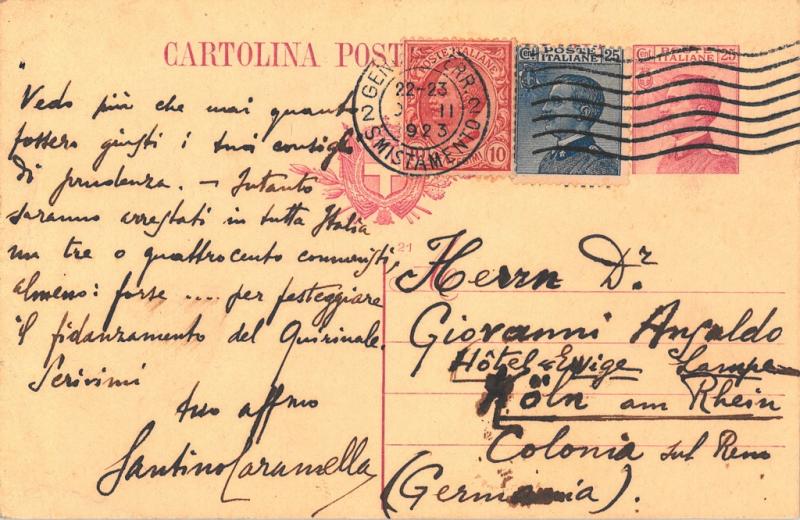 CARTOLINA POST
POSTE ITALIANE
10
CENT. 25
POSTE
ITALIANE
POSTE
ITALIANE 25
22-23
II
923
2 2
SMISTAMENTO
21
Vedo più che mai quanto
fossero giusti i tuoi consigli
di prudenza. – Intanto
saranno arrestati in tutta Italia
un tre o quattrocento comunisti,
almeno: forse .... per festeggiare
il fidanzamento del Quirinale.
Scrivimi
tuo affmo
Santino Caramella
Herrn Dr.
Giovanni Ansaldo
Hôtel Ewige Lampe
Köln am Rhein
Colonia sul Reno
(Germania).